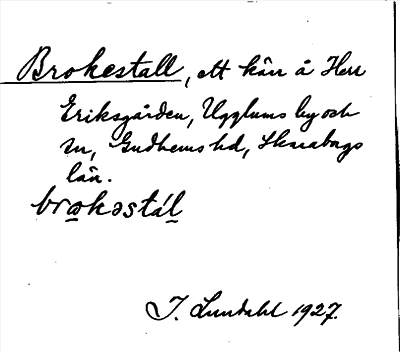 Brokestall, ett kärr å Herr
Eriksgården, Ugglums by och
sn, Gudhems hd, Skaraborgs
län.
brɷkəstál
I. Lundahl 1927.